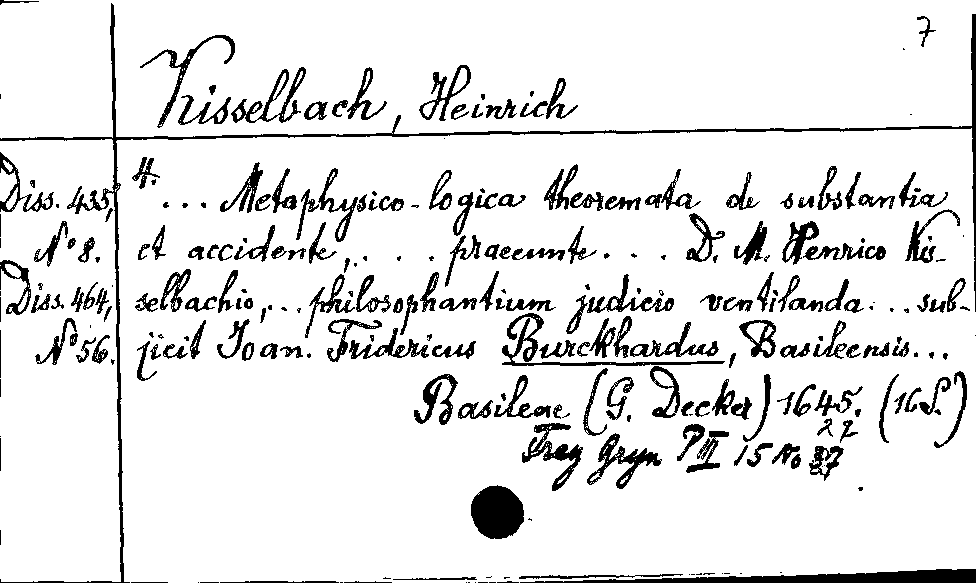 7
Kisselbach, Heinrich
Diss. 435,
No 8.
Diss. 464,
No 56.
4.
... Metaphysico-logica theoremata de substantia
et accidente, . . . praeeunte . . . D. M. Henrico Kis-
selbachio, .. philosophantium judicio ventilanda ... sub-
jicit Joan. Fridericus Burckhardus, Basileensis...
Basileae (G. Decker) 1645. (16 S.)
27
Frey Gryn P III 15 No